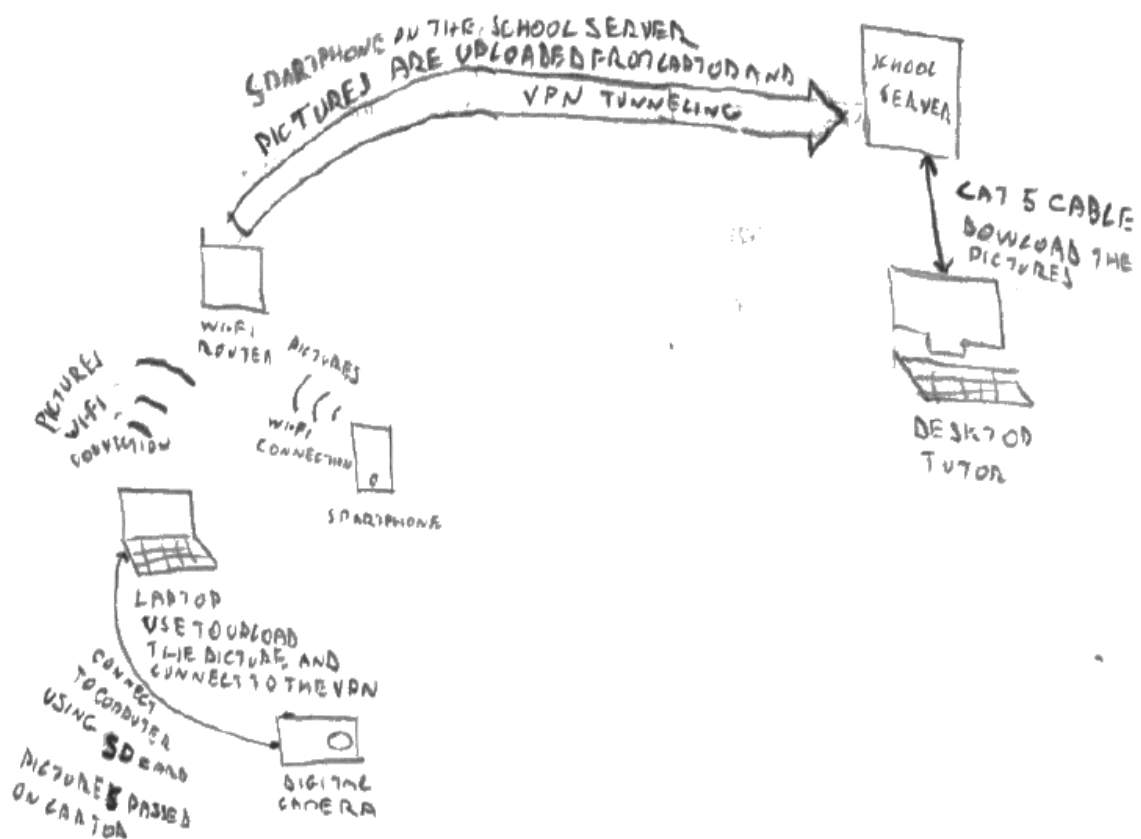 SMARTPHONE ON THE SCHOOL SERVER
PICTURES ARE UPLOADED FROM LAPTOP AND
VPN TUNNELING
SCHOOL
SERVER
CAT 5 CABLE
DOWLOAD THE
PICTURES
DESKTOP
TUTOR
WI-FI
ROUTER
PICTURES
WI-FI
CONNECTION
SMARTPHONE
PICTURES
WI-FI
CONNECTION
LAPTOP
USE TO UPLOAD
THE PICTURE, AND
CONNECT TO THE VPN
CONNECT
TO COMPUTER
USING SD CARD
PICTURES PASSED
ON LAPTOP
DIGITAL
CAMERA